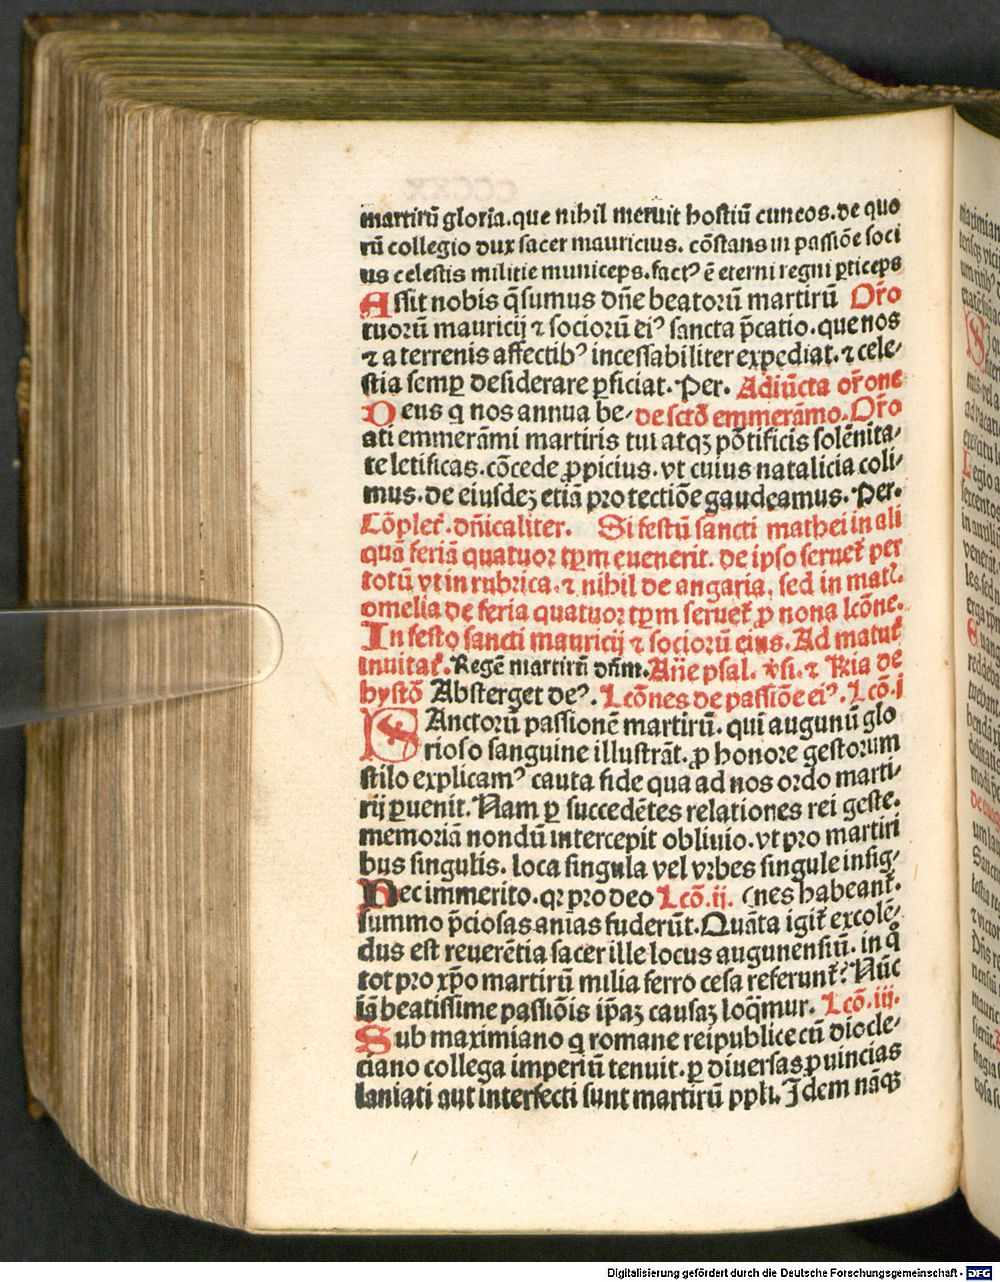 martirū gloria.que nihil meruit hostiū cuneos.de quo
rū collegio dux sacer mauricius. cōstans in passiōe soci
us celestis militie municeps.factꝰ ē eterni regni ꝑticeps
Assit nobis q̄sumus dn̄e beatorū martirū Or̄o
tuorū mauricij ⁊ sociorū eiꝰ sancta p̄catio.que nos
⁊ a terrenis affectibꝰ incessabiliter expediat.⁊ cele⸗
stia semꝑ desiderare ꝑficiat. Per. Adiūcta or̄one
Deus q nos annua be⸗ de sctō emmerāmo. Or̄o
ati emmerāmi martiris tui atqꝫ pōtificis solēnita⸗
te letificas.cōcede ꝓpicius.vt cuius natalicia coli⸗
mus.de eiusdeꝫ etiā protectiōe gaudeamus. Per.
Cōplet̄. dn̄icaliter. Si festū sancti mathei in ali
quā feriā quatuor tꝑm euenerit. de ipso seruet̄ per
totū vt in rubrica.⁊ nihil de angaria, sed in mat̄.
omelia de feria quatuor tꝑm seruet̄ ꝓ nona lcōne.
In festo sancti mauricij ⁊ sociorū eius. Ad matut̄
inuitat̄. Regē martirū dn̄m. An̄e psal. v̄si. ⁊ R̄ia de
hystō Absterget deꝰ. Lcōnes de passiōe eiꝰ. Lcō.j
SAnctorū passionē martirū. qui augunū glo
rioso sanguine illustrāt. ꝓ honore gestorum
stilo explicamꝰ cauta fide qua ad nos ordo marti⸗
rij ꝑuenit. Nam ꝑ succedētes relationes rei geste.
memoriā nondū intercepit obliuio.vt pro martiri
bus singulis. loca singula vel vrbes singule insig⸗
Nec immerito.qꝛ pro deo Lcō.ij. (nes habeant̄.
summo p̄ciosas anīas fuderūt. Quāta igit̄ excolē⸗
dus est reuerētia sacer ille locus augunensiū. in q̊
tot pro xp̄o martirū milia ferro cesa referunt̄? Nūc
iā beatissime passiōis ip̄aꝫ causaꝫ loq̄mur. Lcō.iij.
Sub maximiano q romane reipublice cū diocle⸗
ciano collega imperiū tenuit. ꝑ diuersas ꝓuincias
laniati aut interfecti sunt martirū ppl'i. Idem nāqꝫ
Digitalisierung gefördert durch die Deutsche Forschungsgemeinschaft - DFG